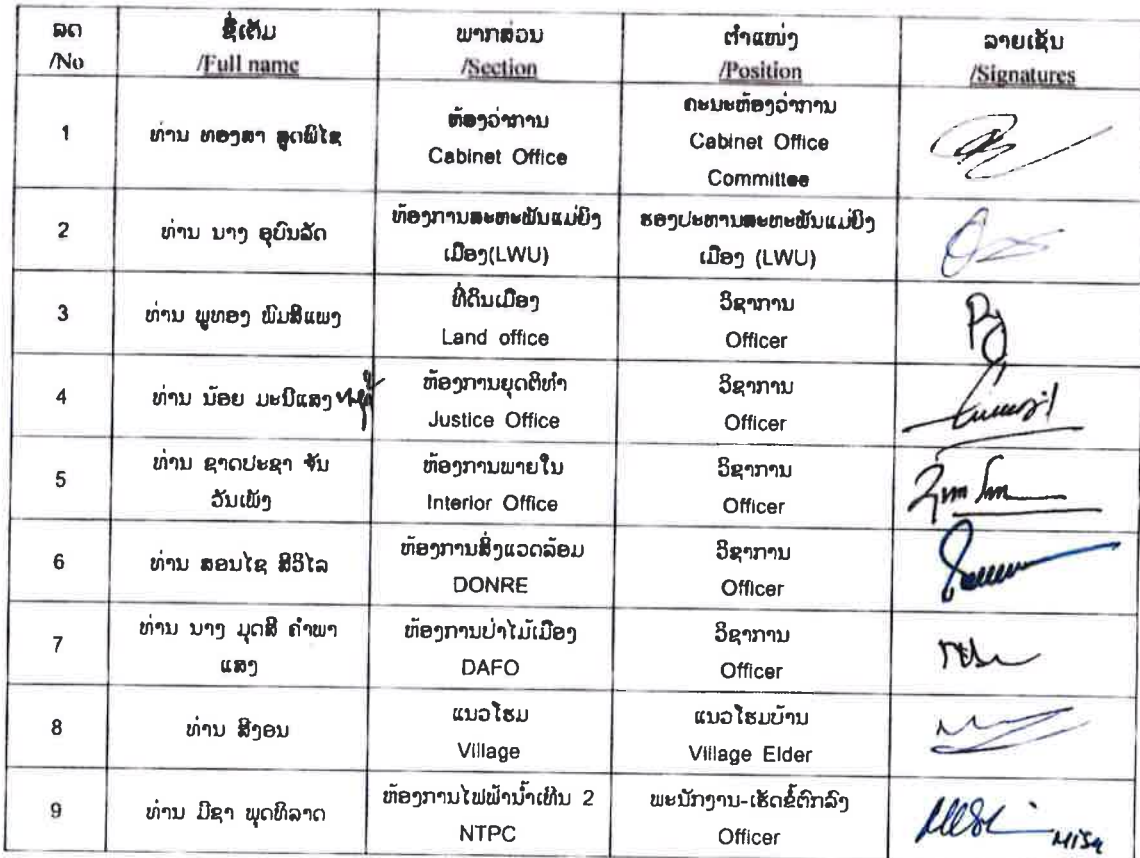 ລດ
/No
ຊື່ເຕັມ
/Full name
ພາກສ່ວນ
/Section
ຕຳແໜ່ງ
/Position
ລາຍເຊັນ
/Signatures
1
ທ່ານ ທອງສາ ສຸດພິໄຊ
ຫ້ອງວ່າການ
Cabinet Office
ຄະນະຫ້ອງວ່າການ
Cabinet Office
Committee
2
ທ່ານ ນາງ ອຸບົນລັດ
ຫ້ອງການສະຫະພັນແມ່ຍິງ
ເມືອງ(LWU)
ຮອງປະທານສະຫະພັນແມ່ຍິງ
ເມືອງ (LWU)
3
ທ່ານ ພູທອງ ພົມສີແພງ
ທີ່ດິນເມືອງ
Land office
ວິຊາການ
Officer
4
ທ່ານ ນ້ອຍ ມະນີແສງ
ຫ້ອງການຍຸດຕິທຳ
Justice Office
ວິຊາການ
Officer
5
ທ່ານ ຊາດປະຊາ ຈັນ
ວັນເພັງ
ຫ້ອງການພາຍໃນ
Interior Office
ວິຊາການ
Officer
6
ທ່ານ ສອນໄຊ ສີວິໄລ
ຫ້ອງການສິ່ງແວດລ້ອມ
DONRE
ວິຊາການ
Officer
7
ທ່ານ ນາງ ມຸດສີ ຄຳພາ
ແສງ
ຫ້ອງການປ່າໄມ້ເມືອງ
DAFO
ວິຊາການ
Officer
8
ທ່ານ ສີງອນ
ແນວໂຮມ
Village
ແນວໂຮມບ້ານ
Village Elder
9
ທ່ານ ມີຊາ ພຸດທິລາດ
ຫ້ອງການໄຟຟ້ານ້ຳເທີນ 2
NTPC
ພະນັກງານ-ເຮັດຂໍ້ຕົກລົງ
Officer
MISA